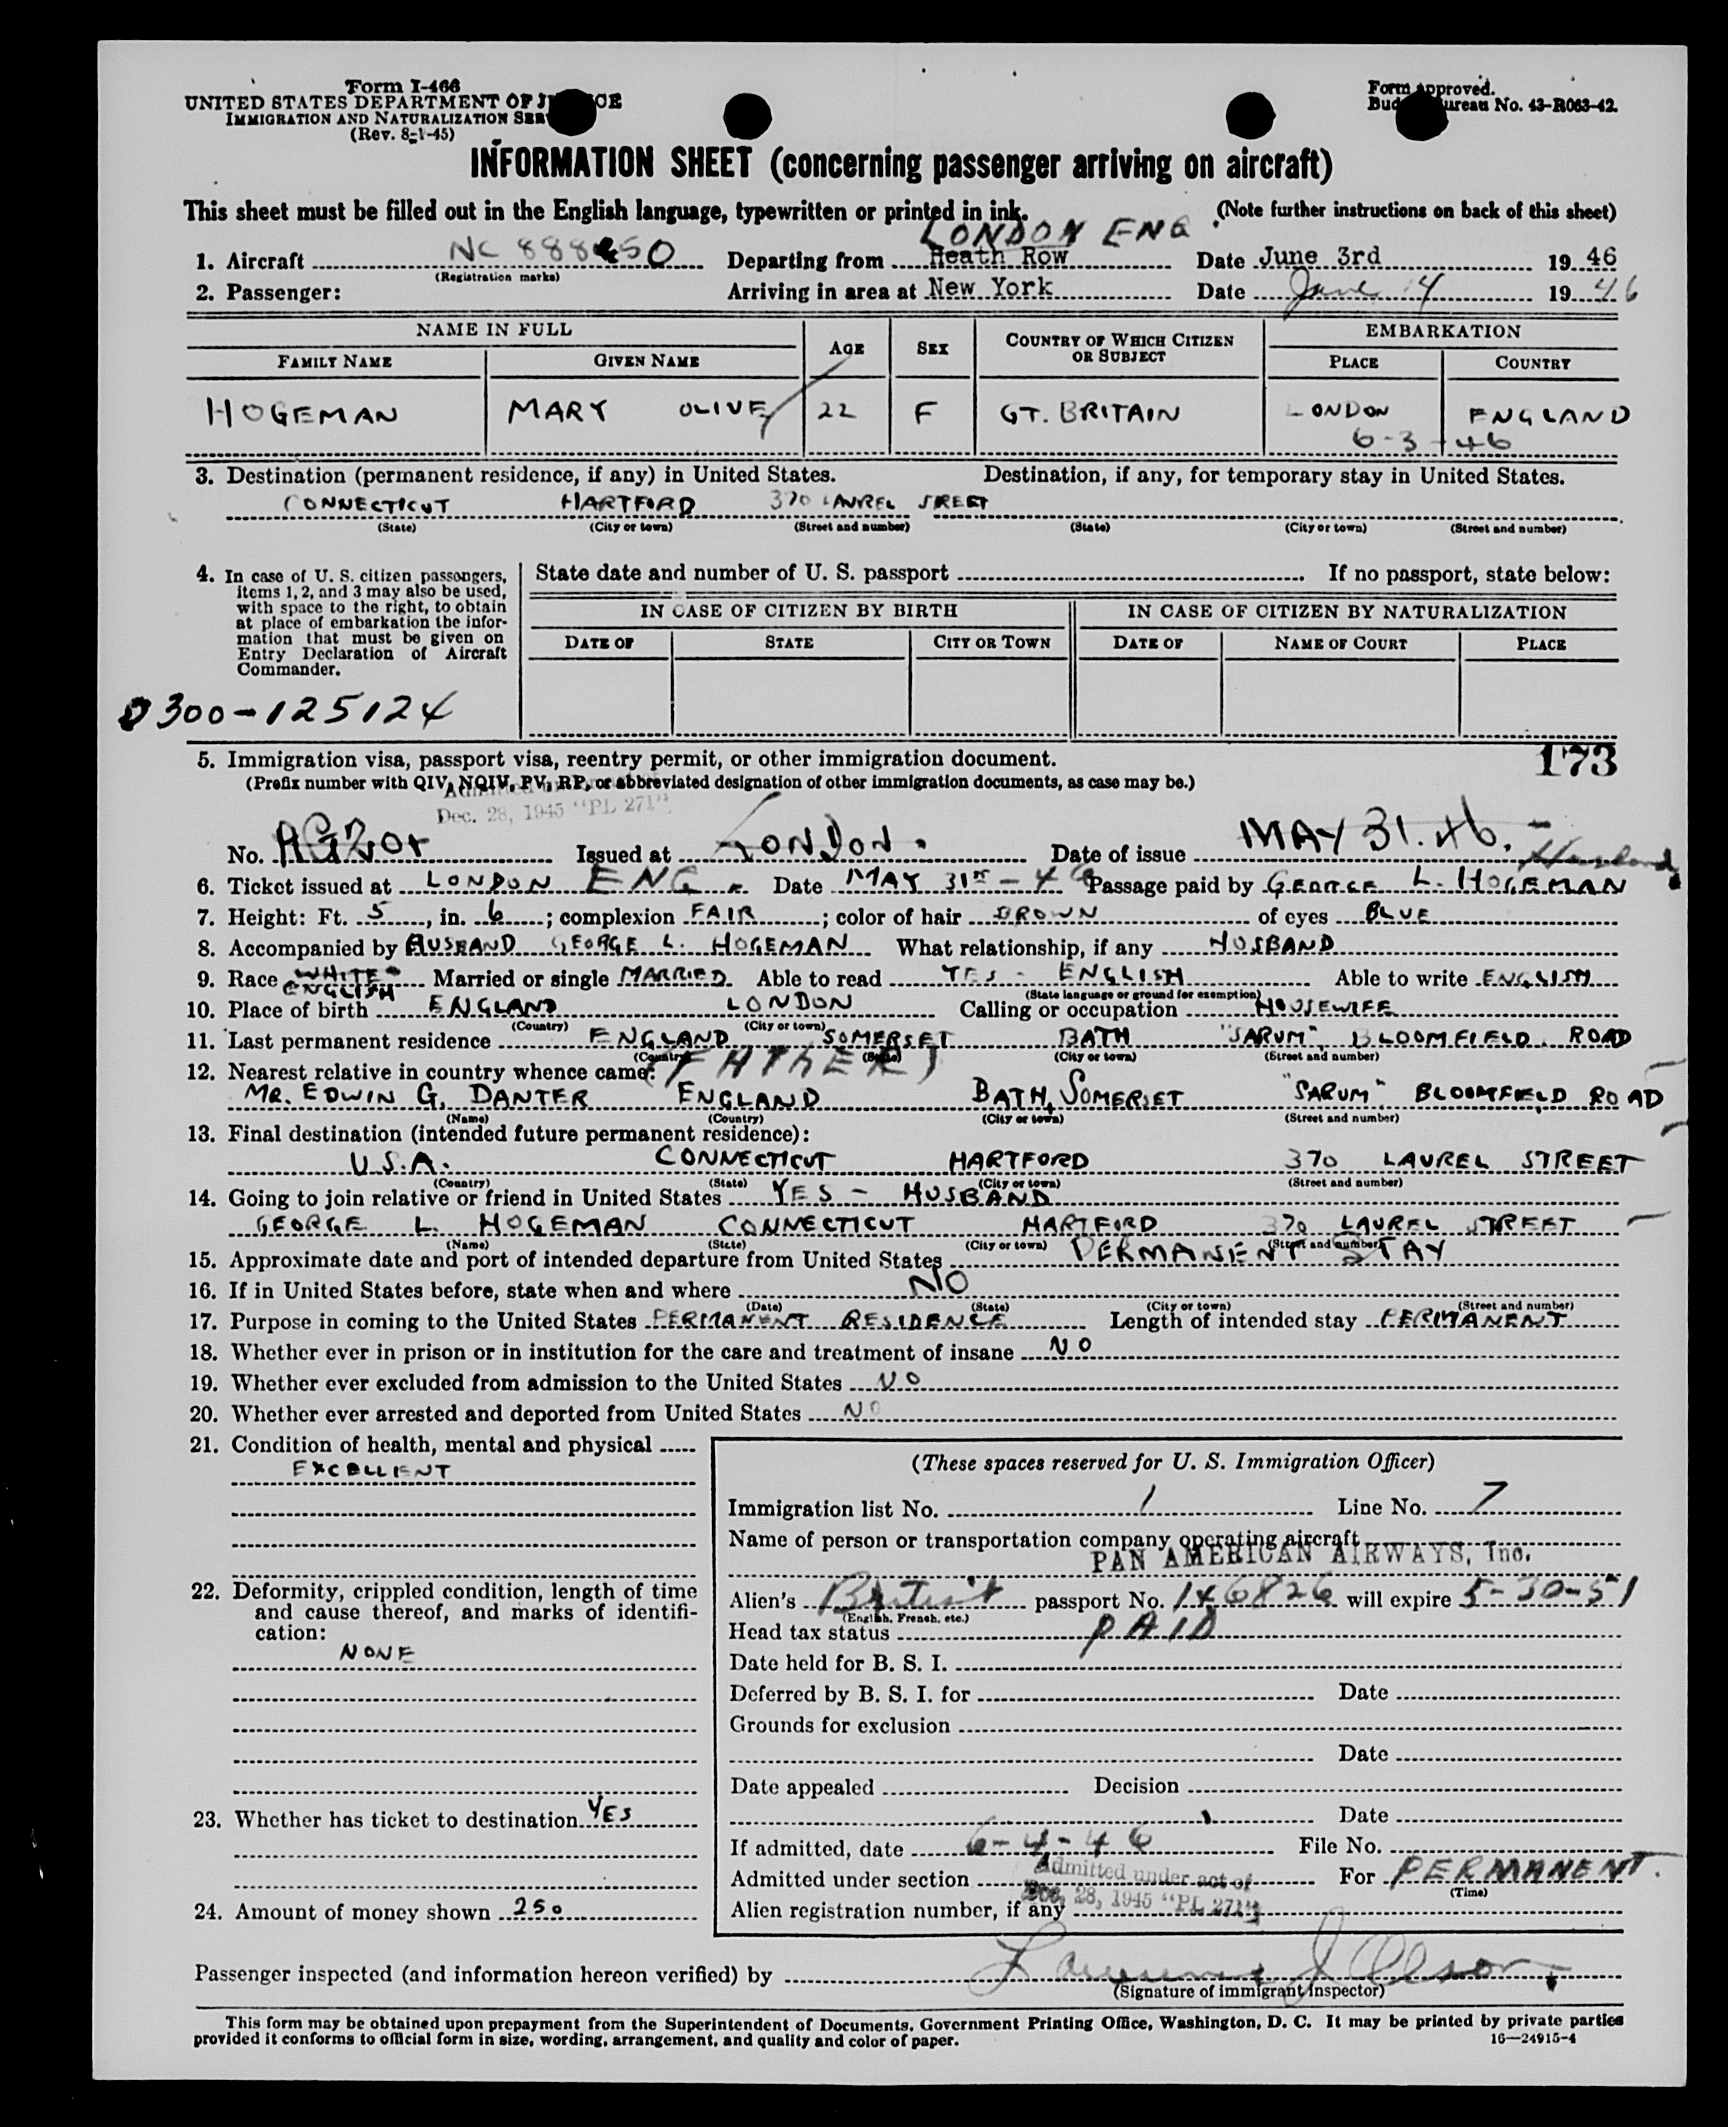 Form I-466
UNITED STATES DEPARTMENT OF J CE
IMMIGRATION AND NATURALIZATION SER
(Rev. 8-1-45)
Form Approved.
Bud ureau No. 43-R063-42.
INFORMATION SHEET (concerning passenger arriving on aircraft)
This sheet must be filled out in the English language, typewritten or printed in ink. (Note further instructions on back of this sheet)
LONDON ENG.
1. Aircraft NC 88850 Departing from Heath Row Date June 3rd 19 46
(Registration marks)
2. Passenger: Arriving in area at New York Date June 4 19 46
NAME IN FULL EMBARKATION
FAMILY NAME GIVEN NAME AGE SEX COUNTRY OF WHICH CITIZEN OR SUBJECT PLACE COUNTRY
HOGEMAN MARY OLIVE 22 F GT. BRITAIN LONDON ENGLAND
6-3-46
3. Destination (permanent residence, if any) in United States. Destination, if any, for temporary stay in United States.
CONNECTICUT HARTFORD 370 LAUREL SREET
(State) (City or town) (Street and number) (State) (City or town) (Street and number)
4. In case of U. S. citizen passengers, items 1, 2, and 3 may also be used, with space to the right, to obtain at place of embarkation the information that must be given on Entry Declaration of Aircraft Commander.
State date and number of U. S. passport If no passport, state below:
IN CASE OF CITIZEN BY BIRTH IN CASE OF CITIZEN BY NATURALIZATION
DATE OF STATE CITY OR TOWN DATE OF NAME OF COURT PLACE
0300-125124
5. Immigration visa, passport visa, reentry permit, or other immigration document. 173
(Prefix number with QIV, NQIV, PV, RP, or abbreviated designation of other immigration documents, as case may be.)
Dec. 28, 1945 "PL 271"
No. Issued at LONDON. Date of issue MAY 31. 46.
Husband
6. Ticket issued at LONDON ENG. Date MAY 31st - 46 Passage paid by GEORGE L. HOGEMAN
7. Height: Ft. 5, in. 6; complexion FAIR; color of hair BROWN of eyes BLUE
8. Accompanied by HUSBAND GEORGE L. HOGEMAN What relationship, if any HUSBAND
9. Race WHITE ENGLISH Married or single MARRIED Able to read YES - ENGLISH Able to write ENGLISH
(State language or ground for exemption)
10. Place of birth ENGLAND LONDON Calling or occupation HOUSEWIFE
(Country) (City or town)
11. Last permanent residence ENGLAND SOMERSET BATH "SARUM", BLOOMFIELD ROAD
(Country) (State) (City or town) (Street and number)
12. Nearest relative in country whence came: (FATHER)
MR. EDWIN G. DANTER ENGLAND BATH, SOMERSET "SARUM" BLOOMFIELD ROAD
(Name) (Country) (City or town) (Street and number)
13. Final destination (intended future permanent residence):
U.S.A. CONNECTICUT HARTFORD 370 LAUREL STREET
(Country) (State) (City or town) (Street and number)
14. Going to join relative or friend in United States YES - HUSBAND
GEORGE L. HOGEMAN CONNECTICUT HARTFORD 370 LAUREL STREET
(Name) (State) (City or town) (Street and number)
15. Approximate date and port of intended departure from United States PERMANENT STAY
16. If in United States before, state when and where NO
(Date) (State) (City or town) (Street and number)
17. Purpose in coming to the United States PERMANENT RESIDENCE Length of intended stay PERMANENT
18. Whether ever in prison or in institution for the care and treatment of insane NO
19. Whether ever excluded from admission to the United States NO
20. Whether ever arrested and deported from United States NO
21. Condition of health, mental and physical
EXCELLENT
22. Deformity, crippled condition, length of time and cause thereof, and marks of identification:
NONE
23. Whether has ticket to destination YES
24. Amount of money shown 250
(These spaces reserved for U. S. Immigration Officer)
Immigration list No. 1 Line No. 7
Name of person or transportation company operating aircraft
PAN AMERICAN AIRWAYS, Inc.
Alien's British passport No. 146826 will expire 5-30-51
(English, French, etc.)
Head tax status PAID
Date held for B. S. I.
Deferred by B. S. I. for Date
Grounds for exclusion
Date
Date appealed Decision
Date
If admitted, date 6-4-46 File No.
Admitted under section Admitted under act of For PERMANENT.
(Time)
Dec. 28, 1945 "PL 271"
Alien registration number, if any
Passenger inspected (and information hereon verified) by
(Signature of immigrant inspector)
This form may be obtained upon prepayment from the Superintendent of Documents, Government Printing Office, Washington, D. C. It may be printed by private parties
provided it conforms to official form in size, wording, arrangement, and quality and color of paper.
16—24915-4